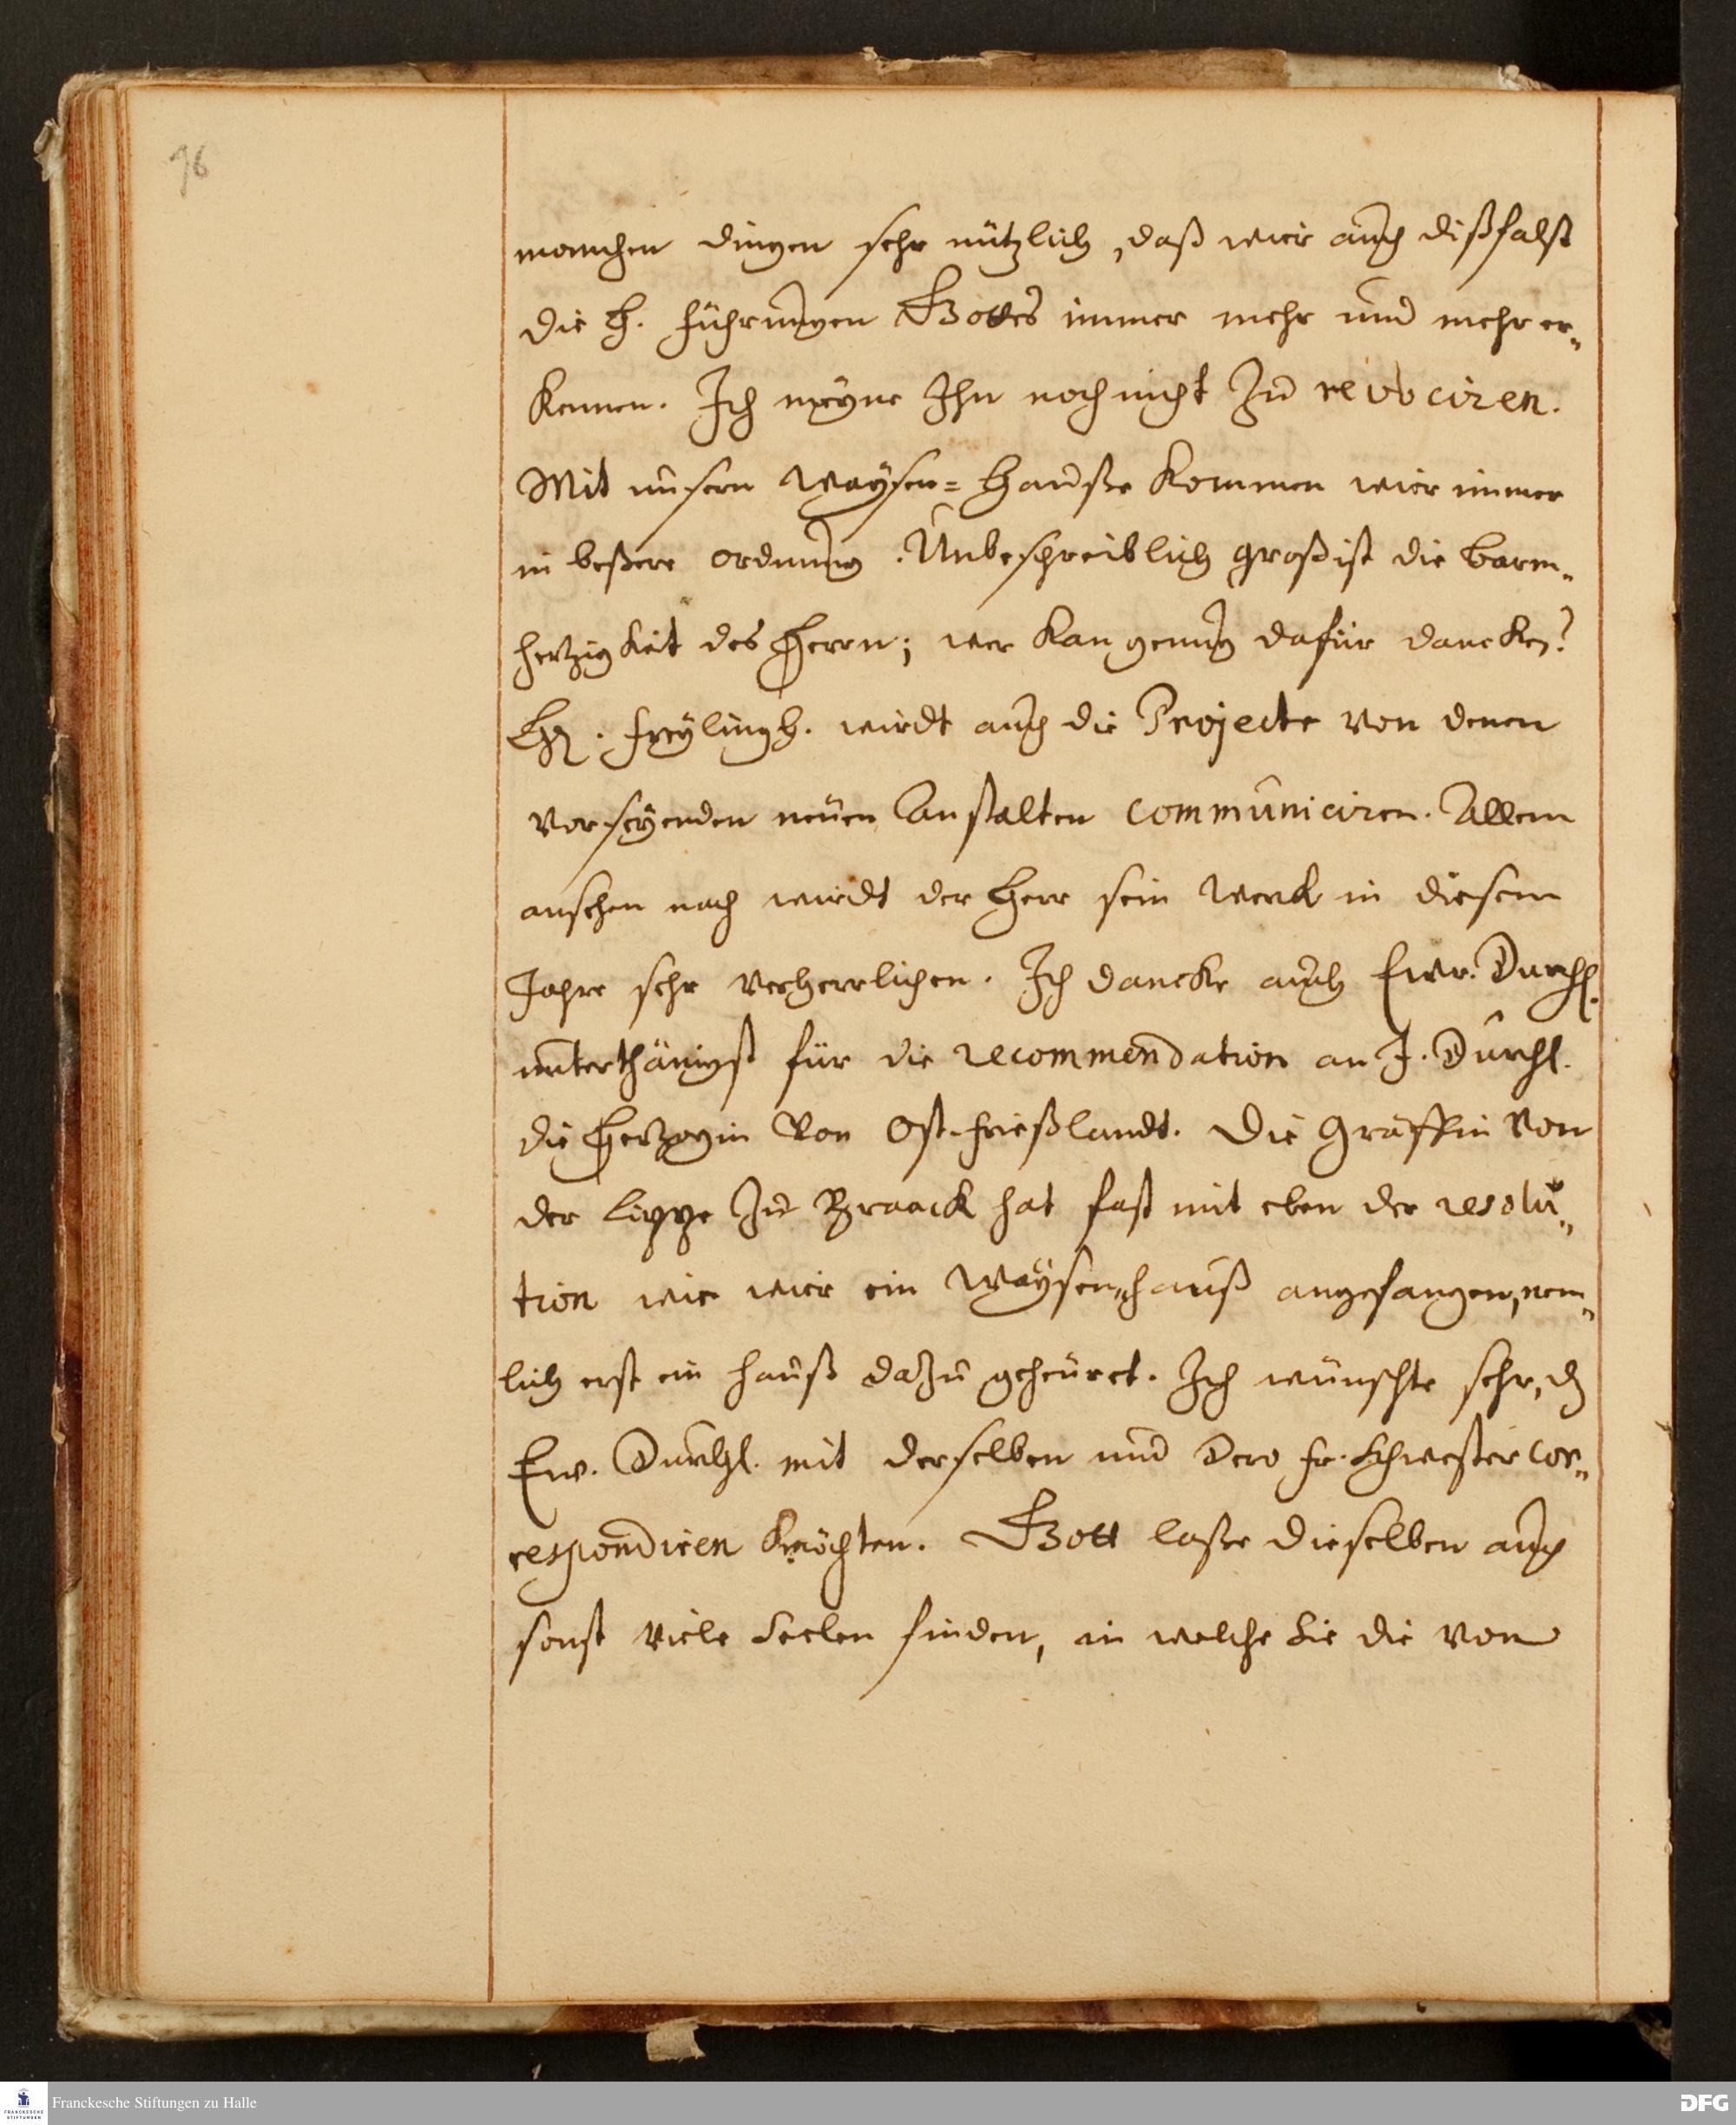 96
manchen dingen sehr nützlich, daß wir auch dißfalß
die H. führungen Gottes immer mehr und mehr er„
kennen. Ich meyne Ihn noch nicht zu revociren.
Mit unsern Waysen=Hauße kommen wir immer
in beßere ordnung. Unbeschreiblich groß ist die barm„
hertzigkeit des Herrn; wer kan genug dafür dancken?
Hr. Freylingh. wirdt auch die Projecte von denen
vorseyenden neuen Anstalten communiciren. Allem
ansehen nach wirdt der Herr sein Werck in diesem
Jahre sehr verherrlichen. Ich dancke auch Ewr. Durchl.
unterthänigst für die recommendation an J. Durchl.
die Hertzogin von Ost-frießlandt. Die Gräffin von
der Lippe zu Braack hat fast mit eben der resolu„
tion wie wir ein Waysen„hauß angefangen, nem„
lich erst ein Hauß dazu geheuret. Ich wünschte sehr, dz
Ew. Durchl. mit derselben und Dero Fr. Schwester cor„
respondiren möchten. Gott laße dieselben auch
sonst viele Seelen finden, in welche Sie die von
Franckesche Stiftungen zu Halle
FRANCKESCHE
STIFTUNGEN
DFG